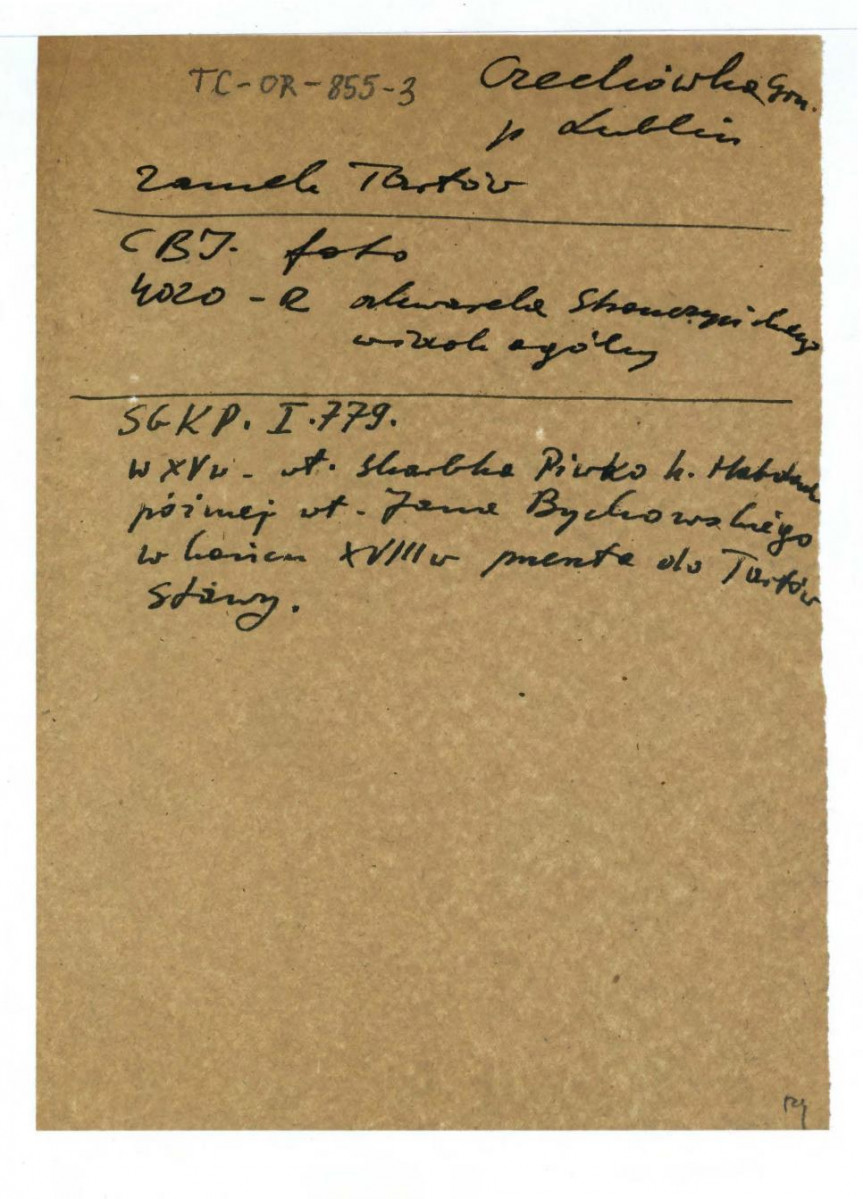 TC-OR-855-3
Czechówka Grn.
p Lublin
Zamek Tarłów
CBI. foto
4020 - R akwarela Stronczyńskiego
widok ogólny
SGKP. I.779.
w XV w. wł. Skarbka Piwko h. Habdank
później wł. Jana Bychowskiego
w końcu XVIII w do Tarłów
Sławy.